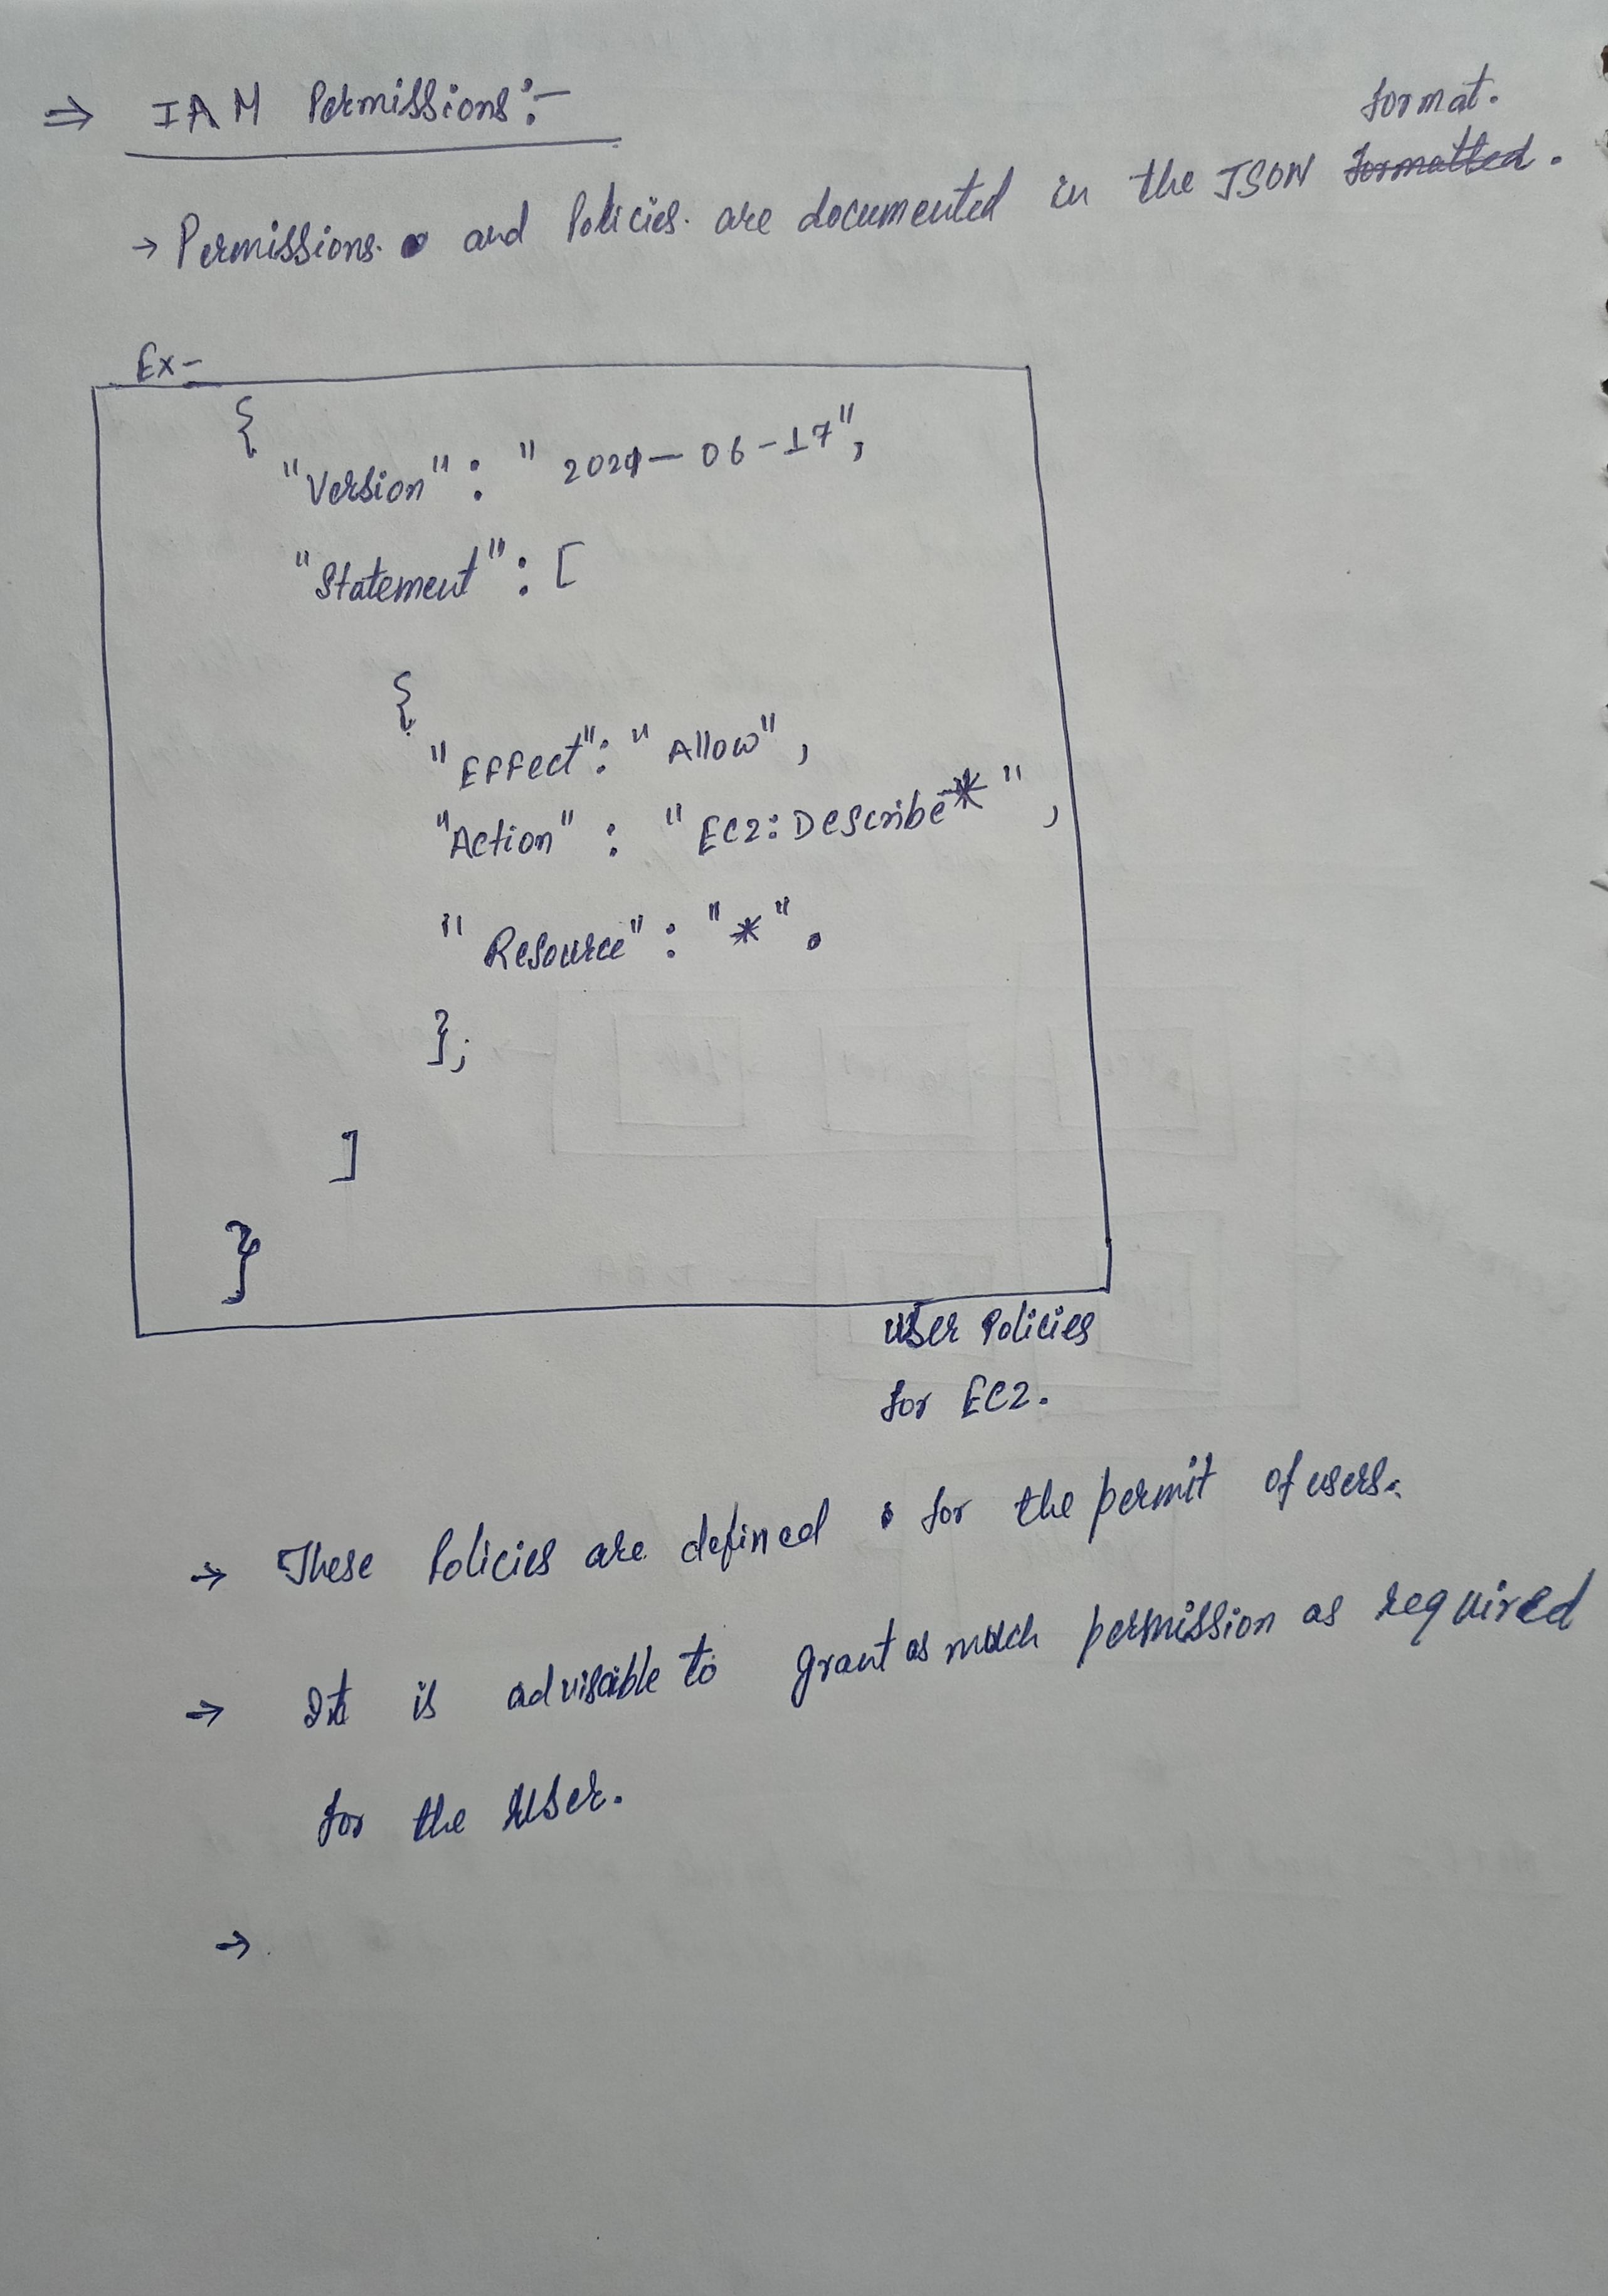 ⇒ IAM Permissions:-
format.
→ Permissions. and Policies. are documented in the JSON formatted.
Ex-
{
"Version" : " 2021- 06-17",
"Statement" : [
{
"Effect": " Allow",
"Action" : " EC2: Describe*",
" Resource" : "*".
};
]
}
User Policies
for EC2.
→ These Policies are defined for the permit of users.
→ It is advisable to grant as much permission as required
for the User.
→